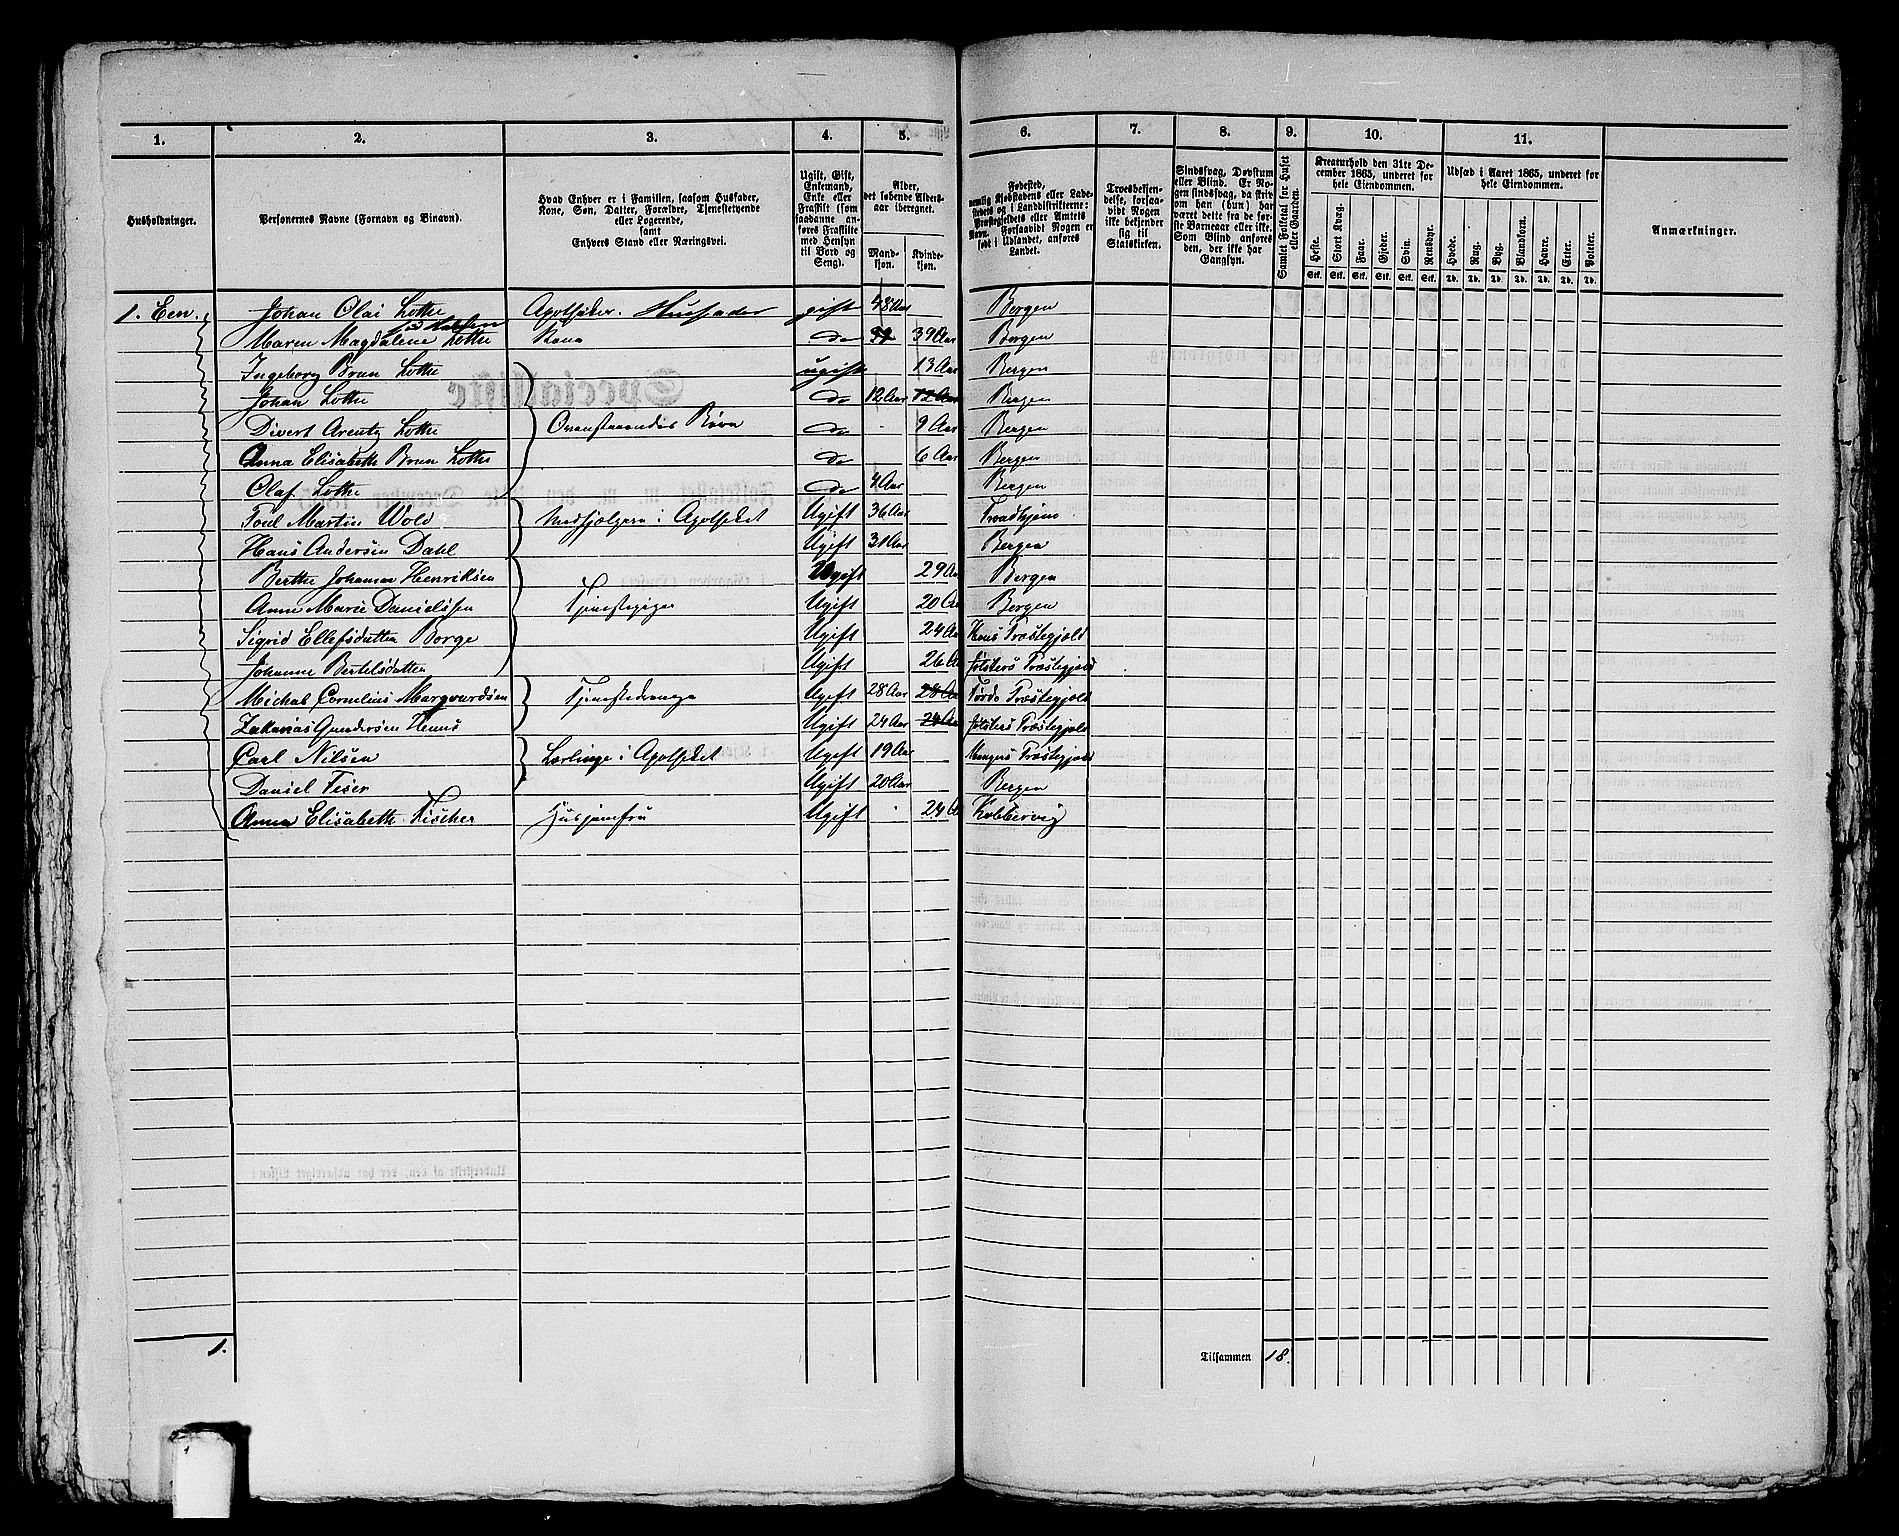 1. 2. 3. 4. 5. 6. 7. 8. 9. 10. 11.
Husholdninger.
Personernes Navne (Fornavn og Binavn).
Hvad Enhver er i Familien, saasom Husfader,
Kone, Søn, Datter, Forældre, Tjenestetyende
eller Logerende,
samt
Enhvers Stand eller Næringsvei.
Ugift, Gift,
Enkemand,
Enke eller
Fraskilt (som
saadanne an-
føres Fraskilte
med Hensyn
til Bord og
Seng).
Alder,
det løbende Alders-
aar iberegnet.
Mand-
kjøn.
Kvinde-
kjøn.
Fødested,
nemlig Kjøbstadens eller Lade-
stedets og i Landdistrikterne:
Præstegjeldets eller Amtets
Navn. Forsaavidt Nogen er
født i Udlandet, anføres
Landet.
Troesbekjen-
delse, forsaa-
vidt Nogen
ikke bekjender
sig til
Statskirken.
Sindssvag, Døvstum
eller Blind. Er No-
gen sindssvag, da skriv
om han (hun) har
været dette fra de før-
ste Barneaar eller ikke.
Som Blind anføres
den, der ikke har
Gangsyn.
Samlet Folketal for Huset
eller Gaarden.
Kreaturhold den 31te De-
cember 1865, underet for
hele Eiendommen.
Heste. Stort Kvæg. Faar. Gjeder. Svin. Rensdyr.
Stk. Stk. Stk. Stk. Stk. Stk.
Udsæd i Aaret 1865, underet for
hele Eiendommen.
Hvede. Rug. Byg. Blandkorn. Havre. Erter. Poteter.
Td. Td. Td. Td. Td. Td. Td.
Anmærkninger.
1. Een. Johan Olai Lothe Apotheker. Husfader gift 48 Aar Bergen
Maren Magdalene Lothe Kone do 39 39 Aar Bergen
Ingeborg Brun Lothe ugift 13 Aar Bergen
Johan Lothe do 12 Aar 12 Aar Bergen
Divert Arentz Lothe Ovenstaaendes Børn do 9 Aar Bergen
Anna Elisabeth Brun Lothe do 6 Aar Bergen
Olaf Lothe do 4 Aar Bergen
Poul Martin Wold Medhjælpere i Apotheket Ugift 36 Aar Trondhjem
Hans Andersen Dahl Ugift 31 Aar Bergen
Berthe Johanna Henriksen Ugift 29 Aar Bergen
Anne Marie Danielssen Tjenestepiger Ugift 20 Bergen
Sigrid Ellefsdatter Borge Ugift 24 Aa Præstegjeld
Johanne Bertelsdatter Ugift 26 A Jølsters Præstegjeld
Michal Cornelius Marqvardsen Tjenestedrenge Ugift 28 Aar 28 Aa Førde Præstegjeld
Zakarias Gundersen Ugift 24 Aar 24 Aa Jølsters Præstegjeld
Carl Nilsen Lærlinge i Apotheket Ugift 19 Aar Mangers Præstegjeld
Daniel Ugift 20 Aar Bergen
Anna Elisabeth Fischer Husjomfru Ugift 24 A Kobbervig
1. Tilsammen 18.